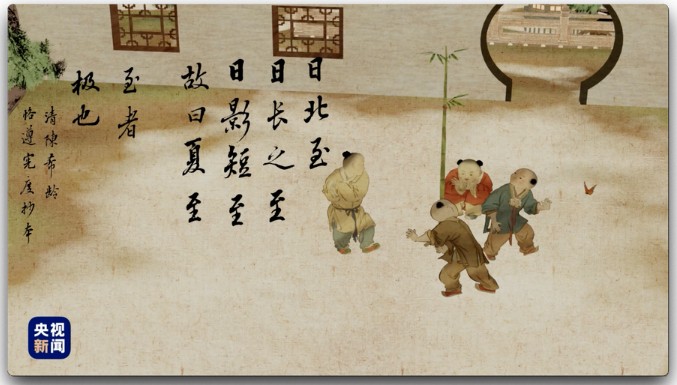 日北至
日长之至
日影短至
故曰夏至
至者
极也
清陳希龄
恪遵宪度抄本
央视
新闻